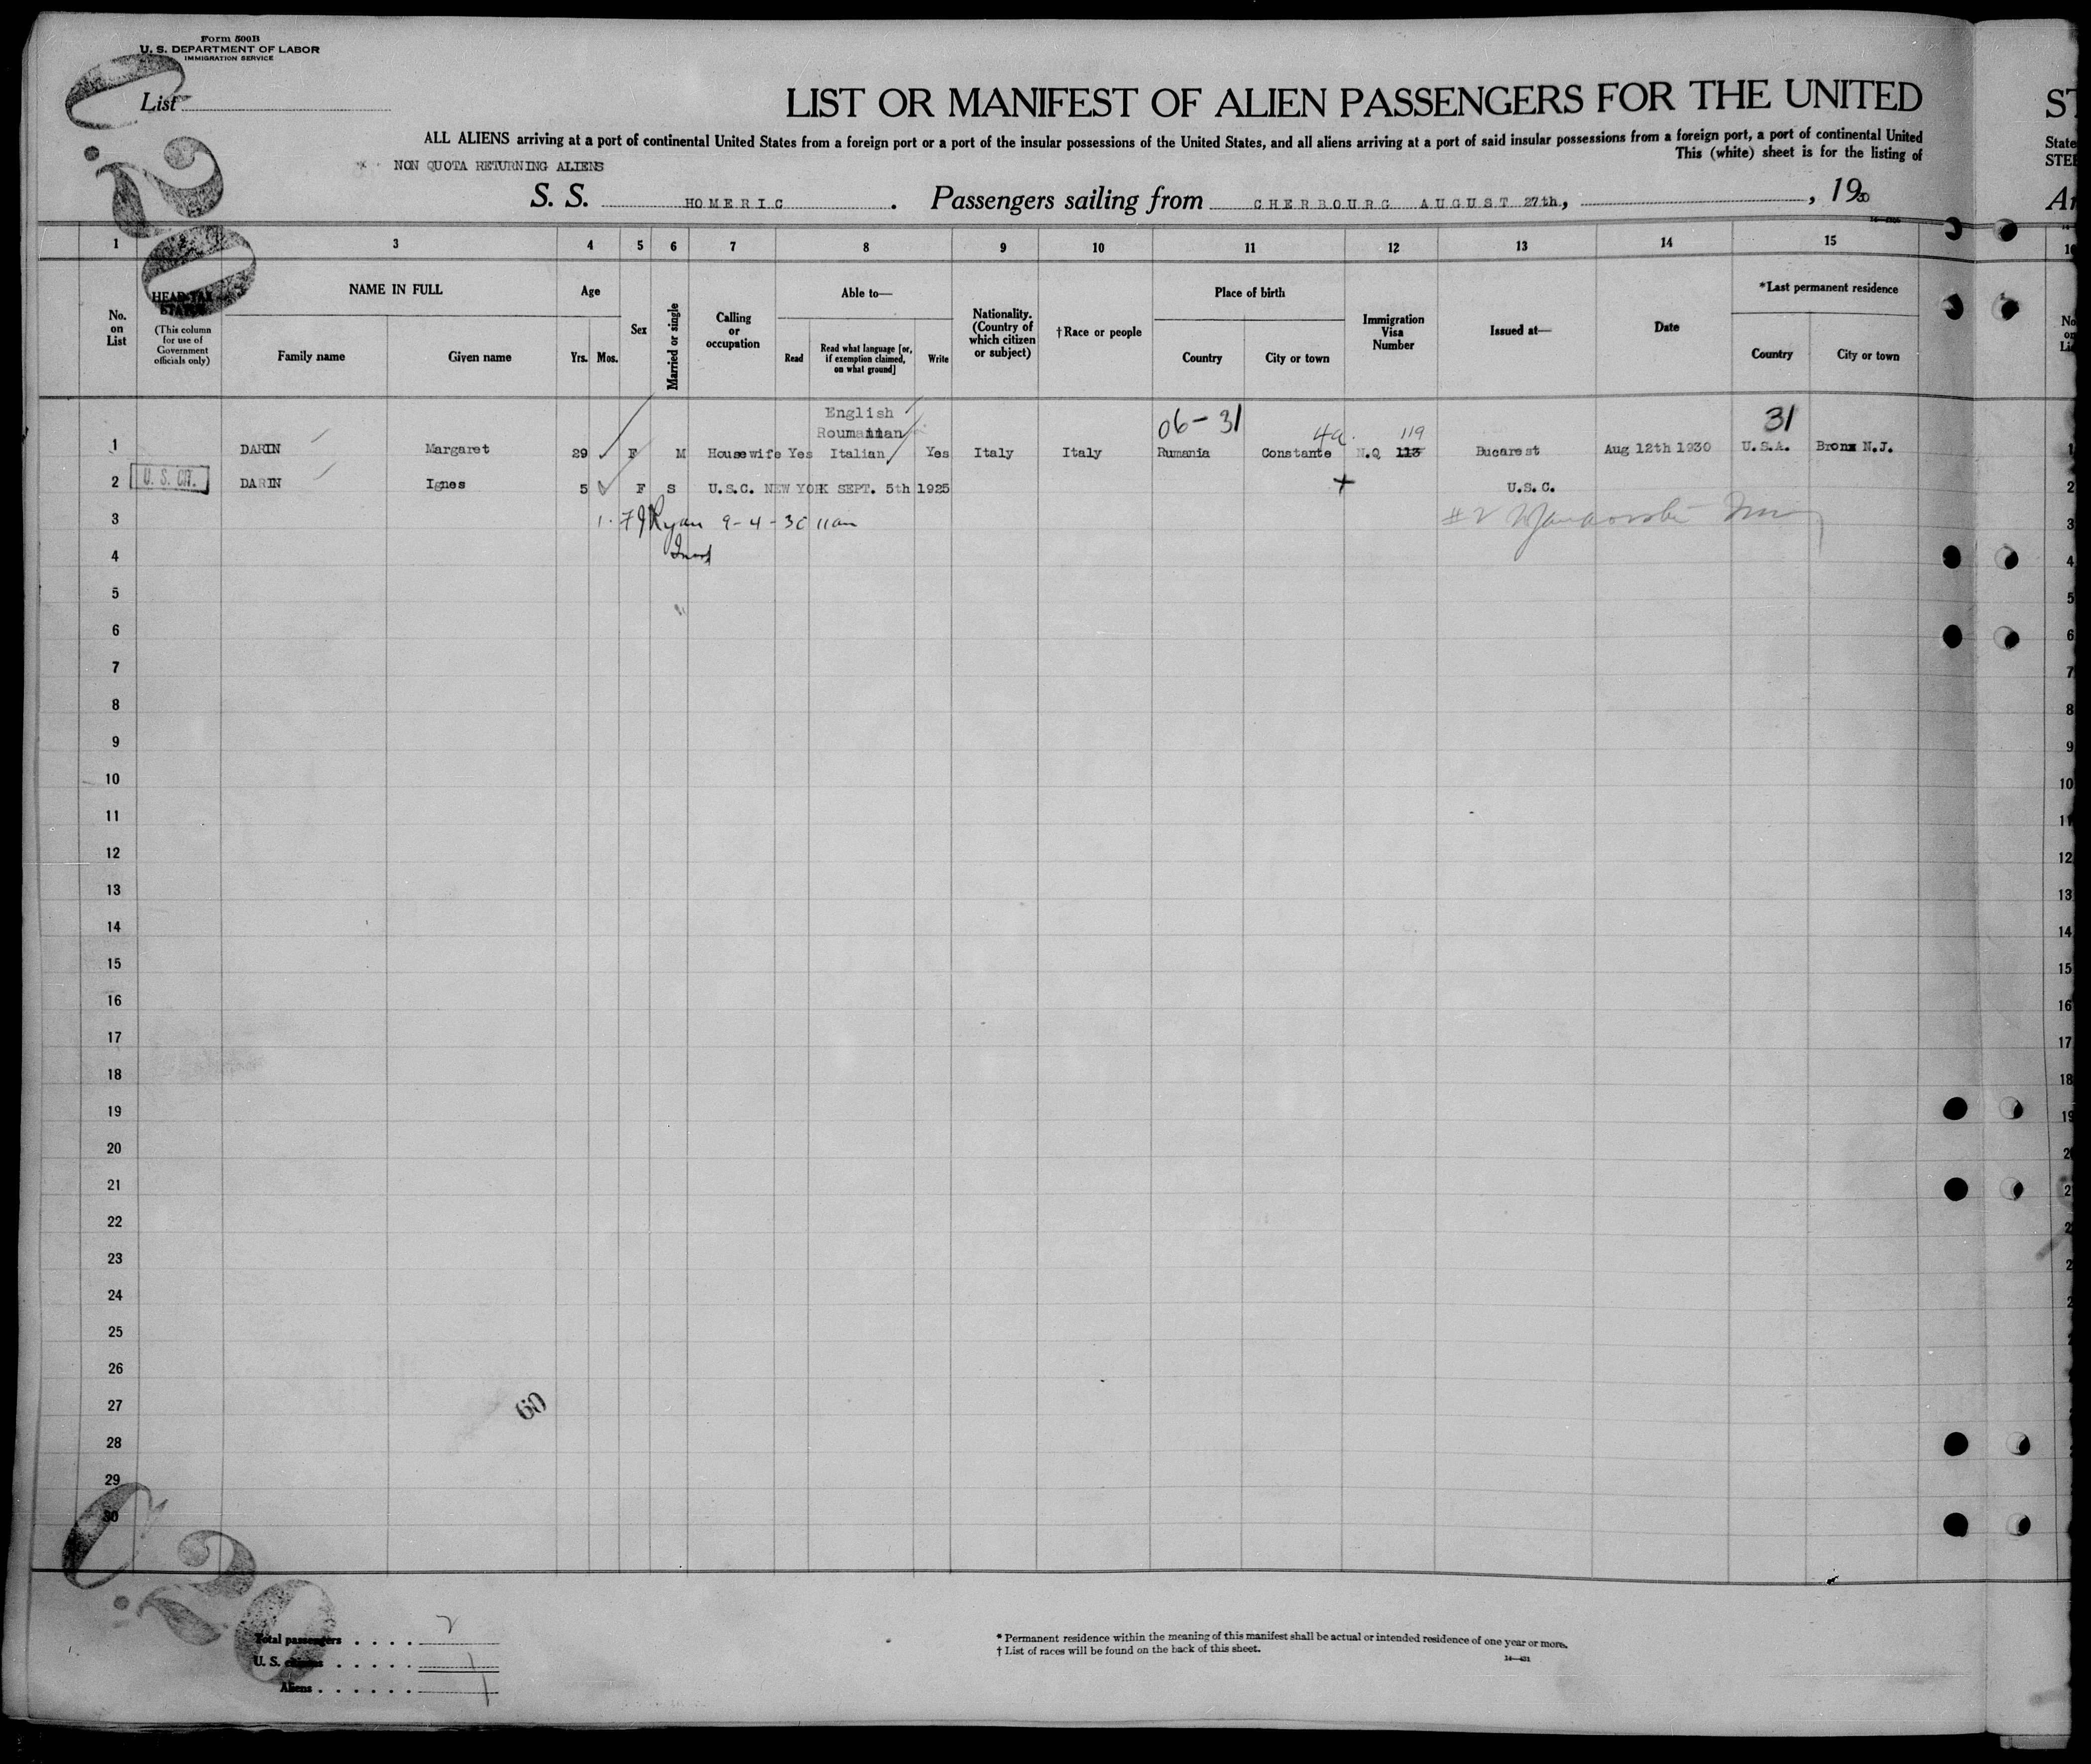 Form 500B
U. S. DEPARTMENT OF LABOR
IMMIGRATION SERVICE
List
LIST OR MANIFEST OF ALIEN PASSENGERS FOR THE UNITED
ST
ALL ALIENS arriving at a port of continental United States from a foreign port or a port of the insular possessions of the United States, and all aliens arriving at a port of said insular possessions from a foreign port, a port of continental United
State
This (white) sheet is for the listing of
STEE
NON QUOTA RETURNING ALIENS
S. S. HOMERIC. Passengers sailing from CHERBOURG AUGUST 27th, , 1930
1 2 3 4 5 6 7 8 9 10 11 12 13 14 15
No. on List
HEAD-TAX STATUS
(This column for use of Government officials only)
NAME IN FULL
Family name
Given name
Age
Yrs. Mos.
Sex
Married or single
Calling or occupation
Able to—
Read
Read what language [or, if exemption claimed, on what ground]
Write
Nationality. (Country of which citizen or subject)
†Race or people
Place of birth
Country
City or town
Immigration Visa Number
Issued at—
Date
*Last permanent residence
Country
City or town
English
06-31
31
Roumanian
4a. 119
1 DARIN Margaret 29 F M Housewife Yes Italian Yes Italy Italy Rumania Constante N.Q 113 Bucarest Aug 12th 1930 U.S.A. Bronx N.J.
2 U. S. CIT. DARIN Ignes 5 F S U.S.C. NEW YORK SEPT. 5th 1925 U.S.C.
3 1. F J Ryan 9-4-30 11am
4
5
6
7
8
9
10
11
12
13
14
15
16
17
18
19
20
21
22
23
24
25
26
27
60
28
29
30
Total passengers . . . . 2
U. S. citizens . . . . . 1
Aliens . . . . . . 1
* Permanent residence within the meaning of this manifest shall be actual or intended residence of one year or more.
† List of races will be found on the back of this sheet.